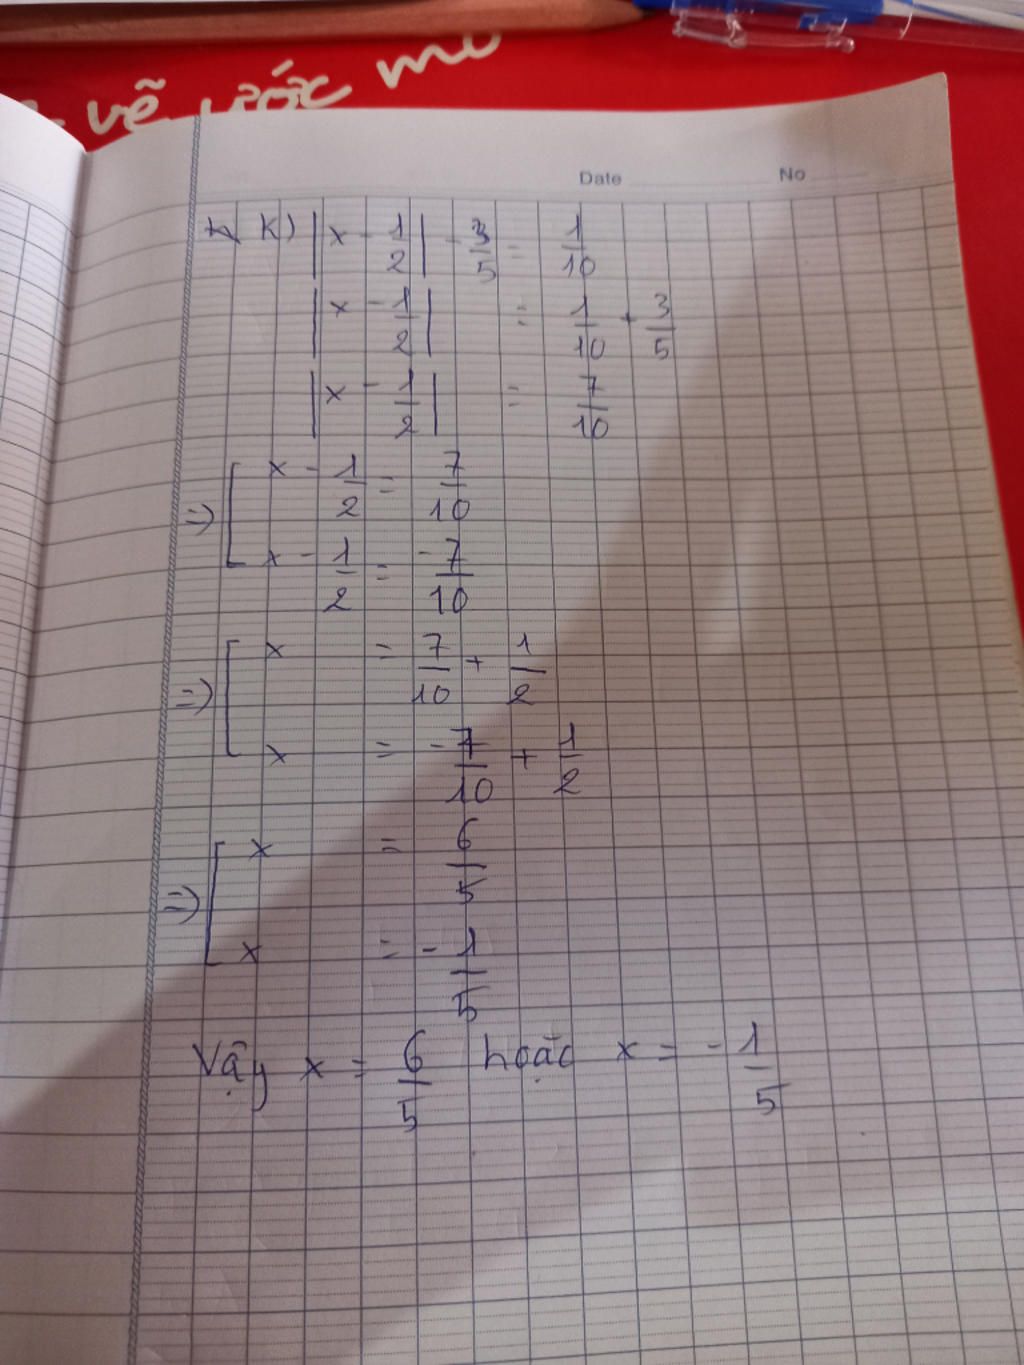 vẽ ước mơ
Date No
K) |x - 1/2| - 3/5 = 1/10
|x - 1/2| = 1/10 + 3/5
|x - 1/2| = 7/10
=> [ x - 1/2 = 7/10
x - 1/2 = -7/10
=> [ x = 7/10 + 1/2
x = -7/10 + 1/2
=> [ x = 6/5
x = -1/5
Vậy x = 6/5 hoặc x = -1/5